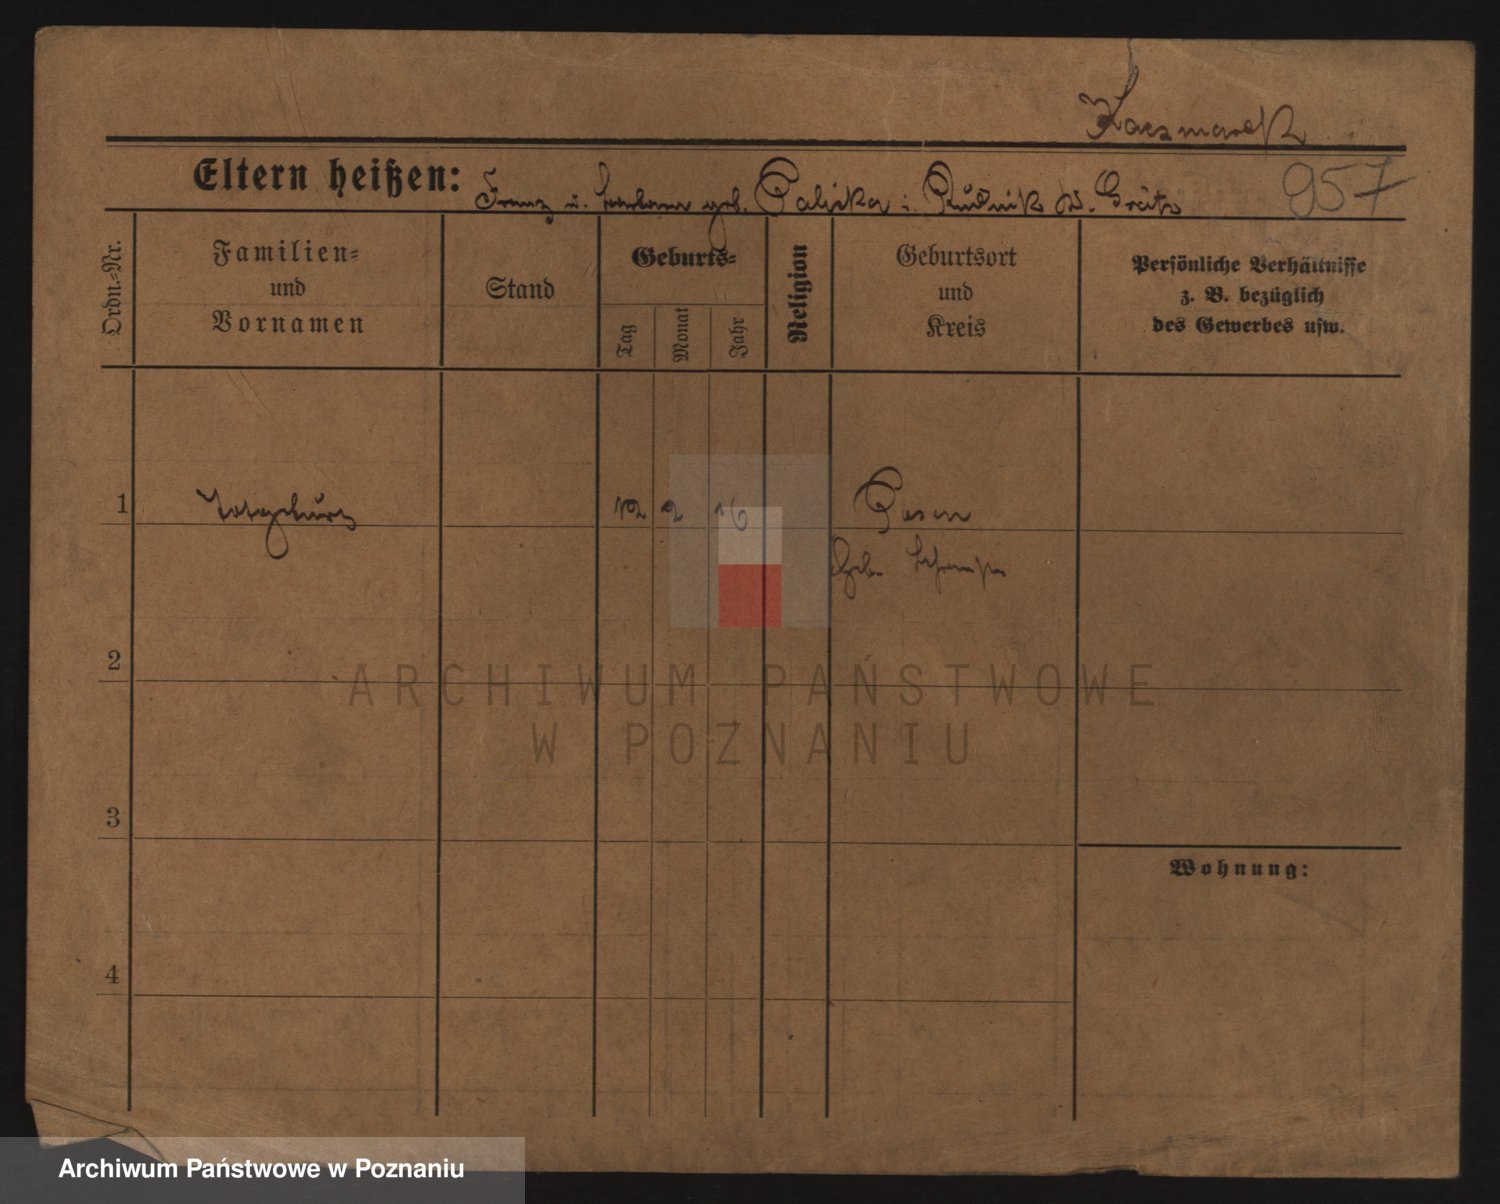 Kaczmarek
Eltern heißen: Franz u. Barbara geb. Palicka i. Rudnik Kr. Grätz
957
Ordn.=Nr.
Familien=
und
Vornamen
Stand
Geburts=
Tag
Monat
Jahr
Religion
Geburtsort
und
Kreis
Persönliche Verhältnisse
z. B. bezüglich
des Gewerbes usw.
1 Totgeburt 12 2 16 Posen
Geb.
2
ARCHIWUM PAŃSTWOWE
W POZNANIU
3
Wohnung:
4
Archiwum Państwowe w Poznaniu